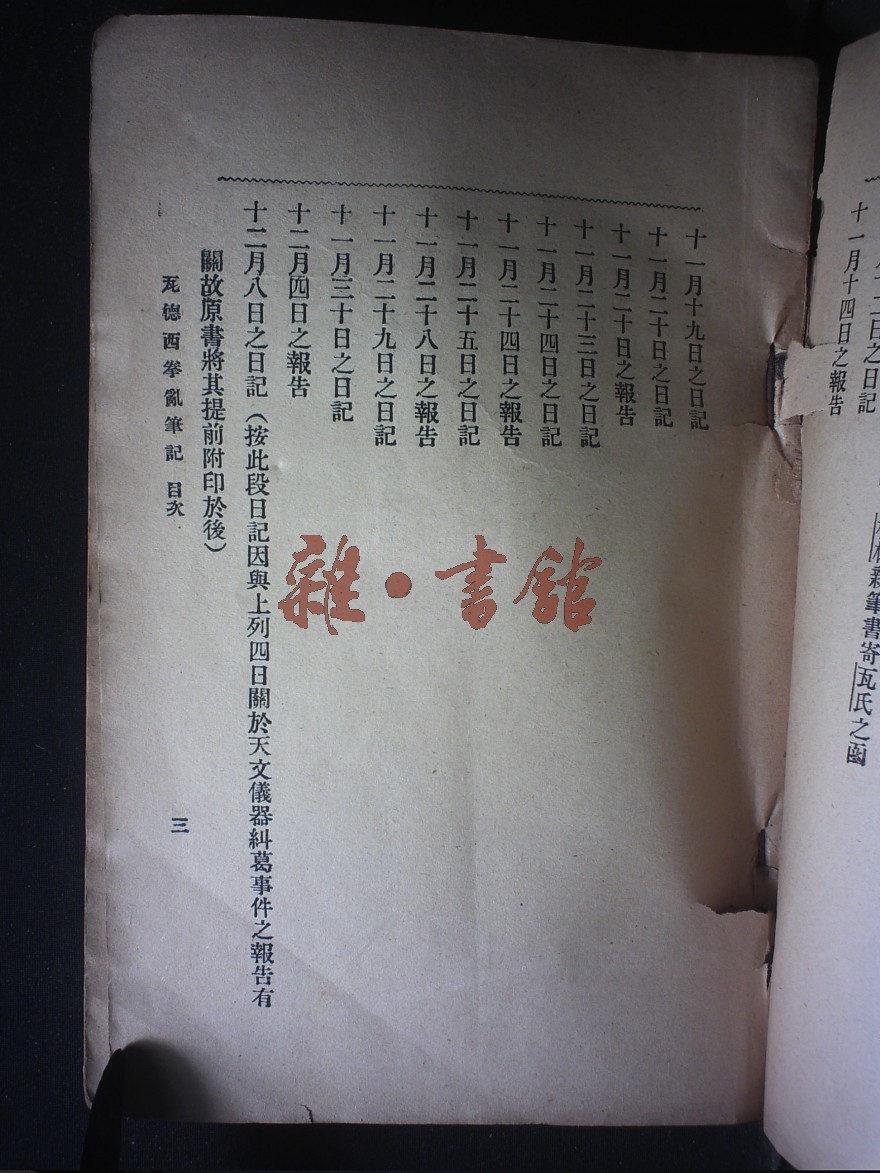 十一月十二日之日記
十一月十四日之報告
親筆書寄瓦氏之函
十一月十九日之日記
十一月二十日之日記
十一月二十日之報告
十一月二十三日之日記
十一月二十四日之日記
十一月二十四日之報告
十一月二十五日之日記
十一月二十八日之報告
十一月二十九日之日記
十一月三十日之日記
十二月四日之報告
十二月八日之日記（按此段日記因與上列四日關於天文儀器糾葛事件之報告有
關故原書將其提前附印於後）
瓦德西拳亂筆記 目次
三
雜·書館